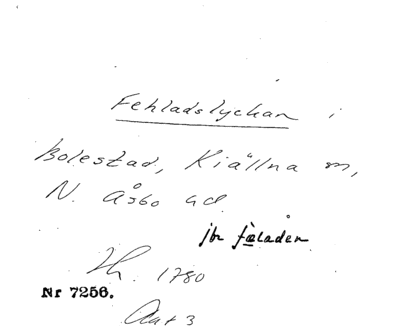 Fehladslyckan i
Bolestad, Kiällna sn,
N. Åsbo hd
jbr fäladen
Lh. 1780
Nr 7256.
Akt 3